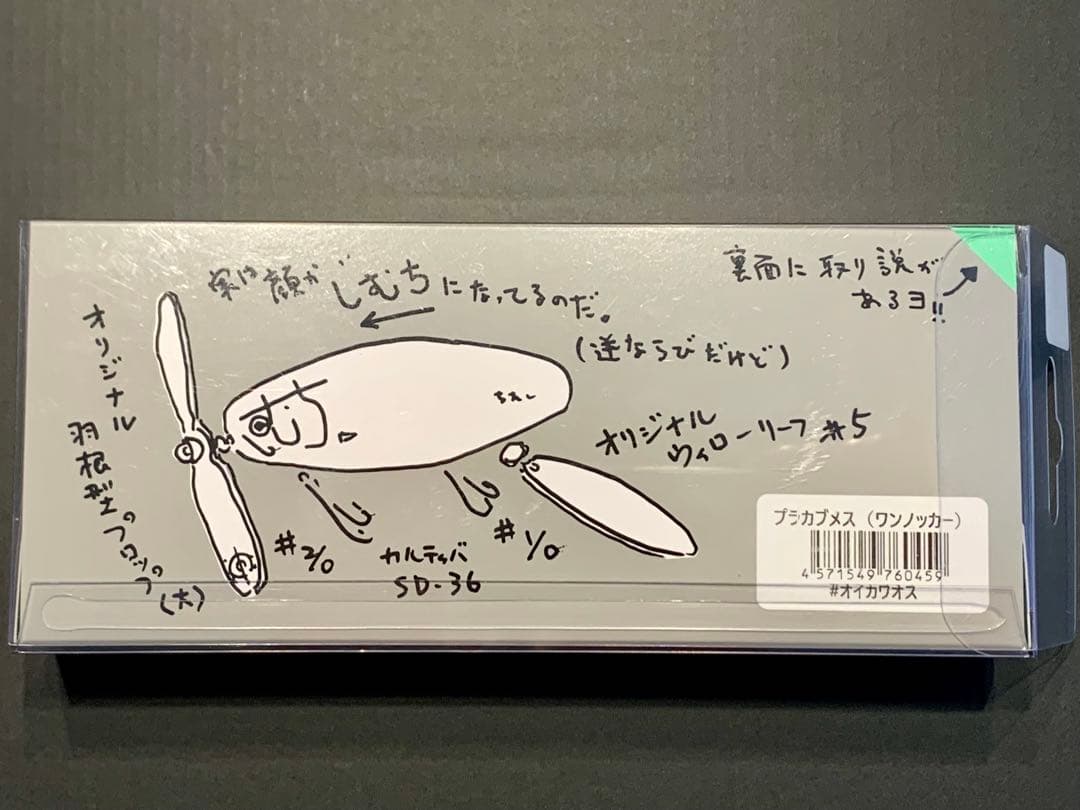 実は顔が じむち になってるのだ。
(逆ならびだけど)
裏面に取り説が
あるヨ!!
オリジナル
羽根型プロップ
(大)
むち
オリジナル
ウィローリーフ #5
#2/0
カルティバ
SD-36
#1/0
プラカブメス (ワンノッカー)
4 571549 760459
#オイカワオス